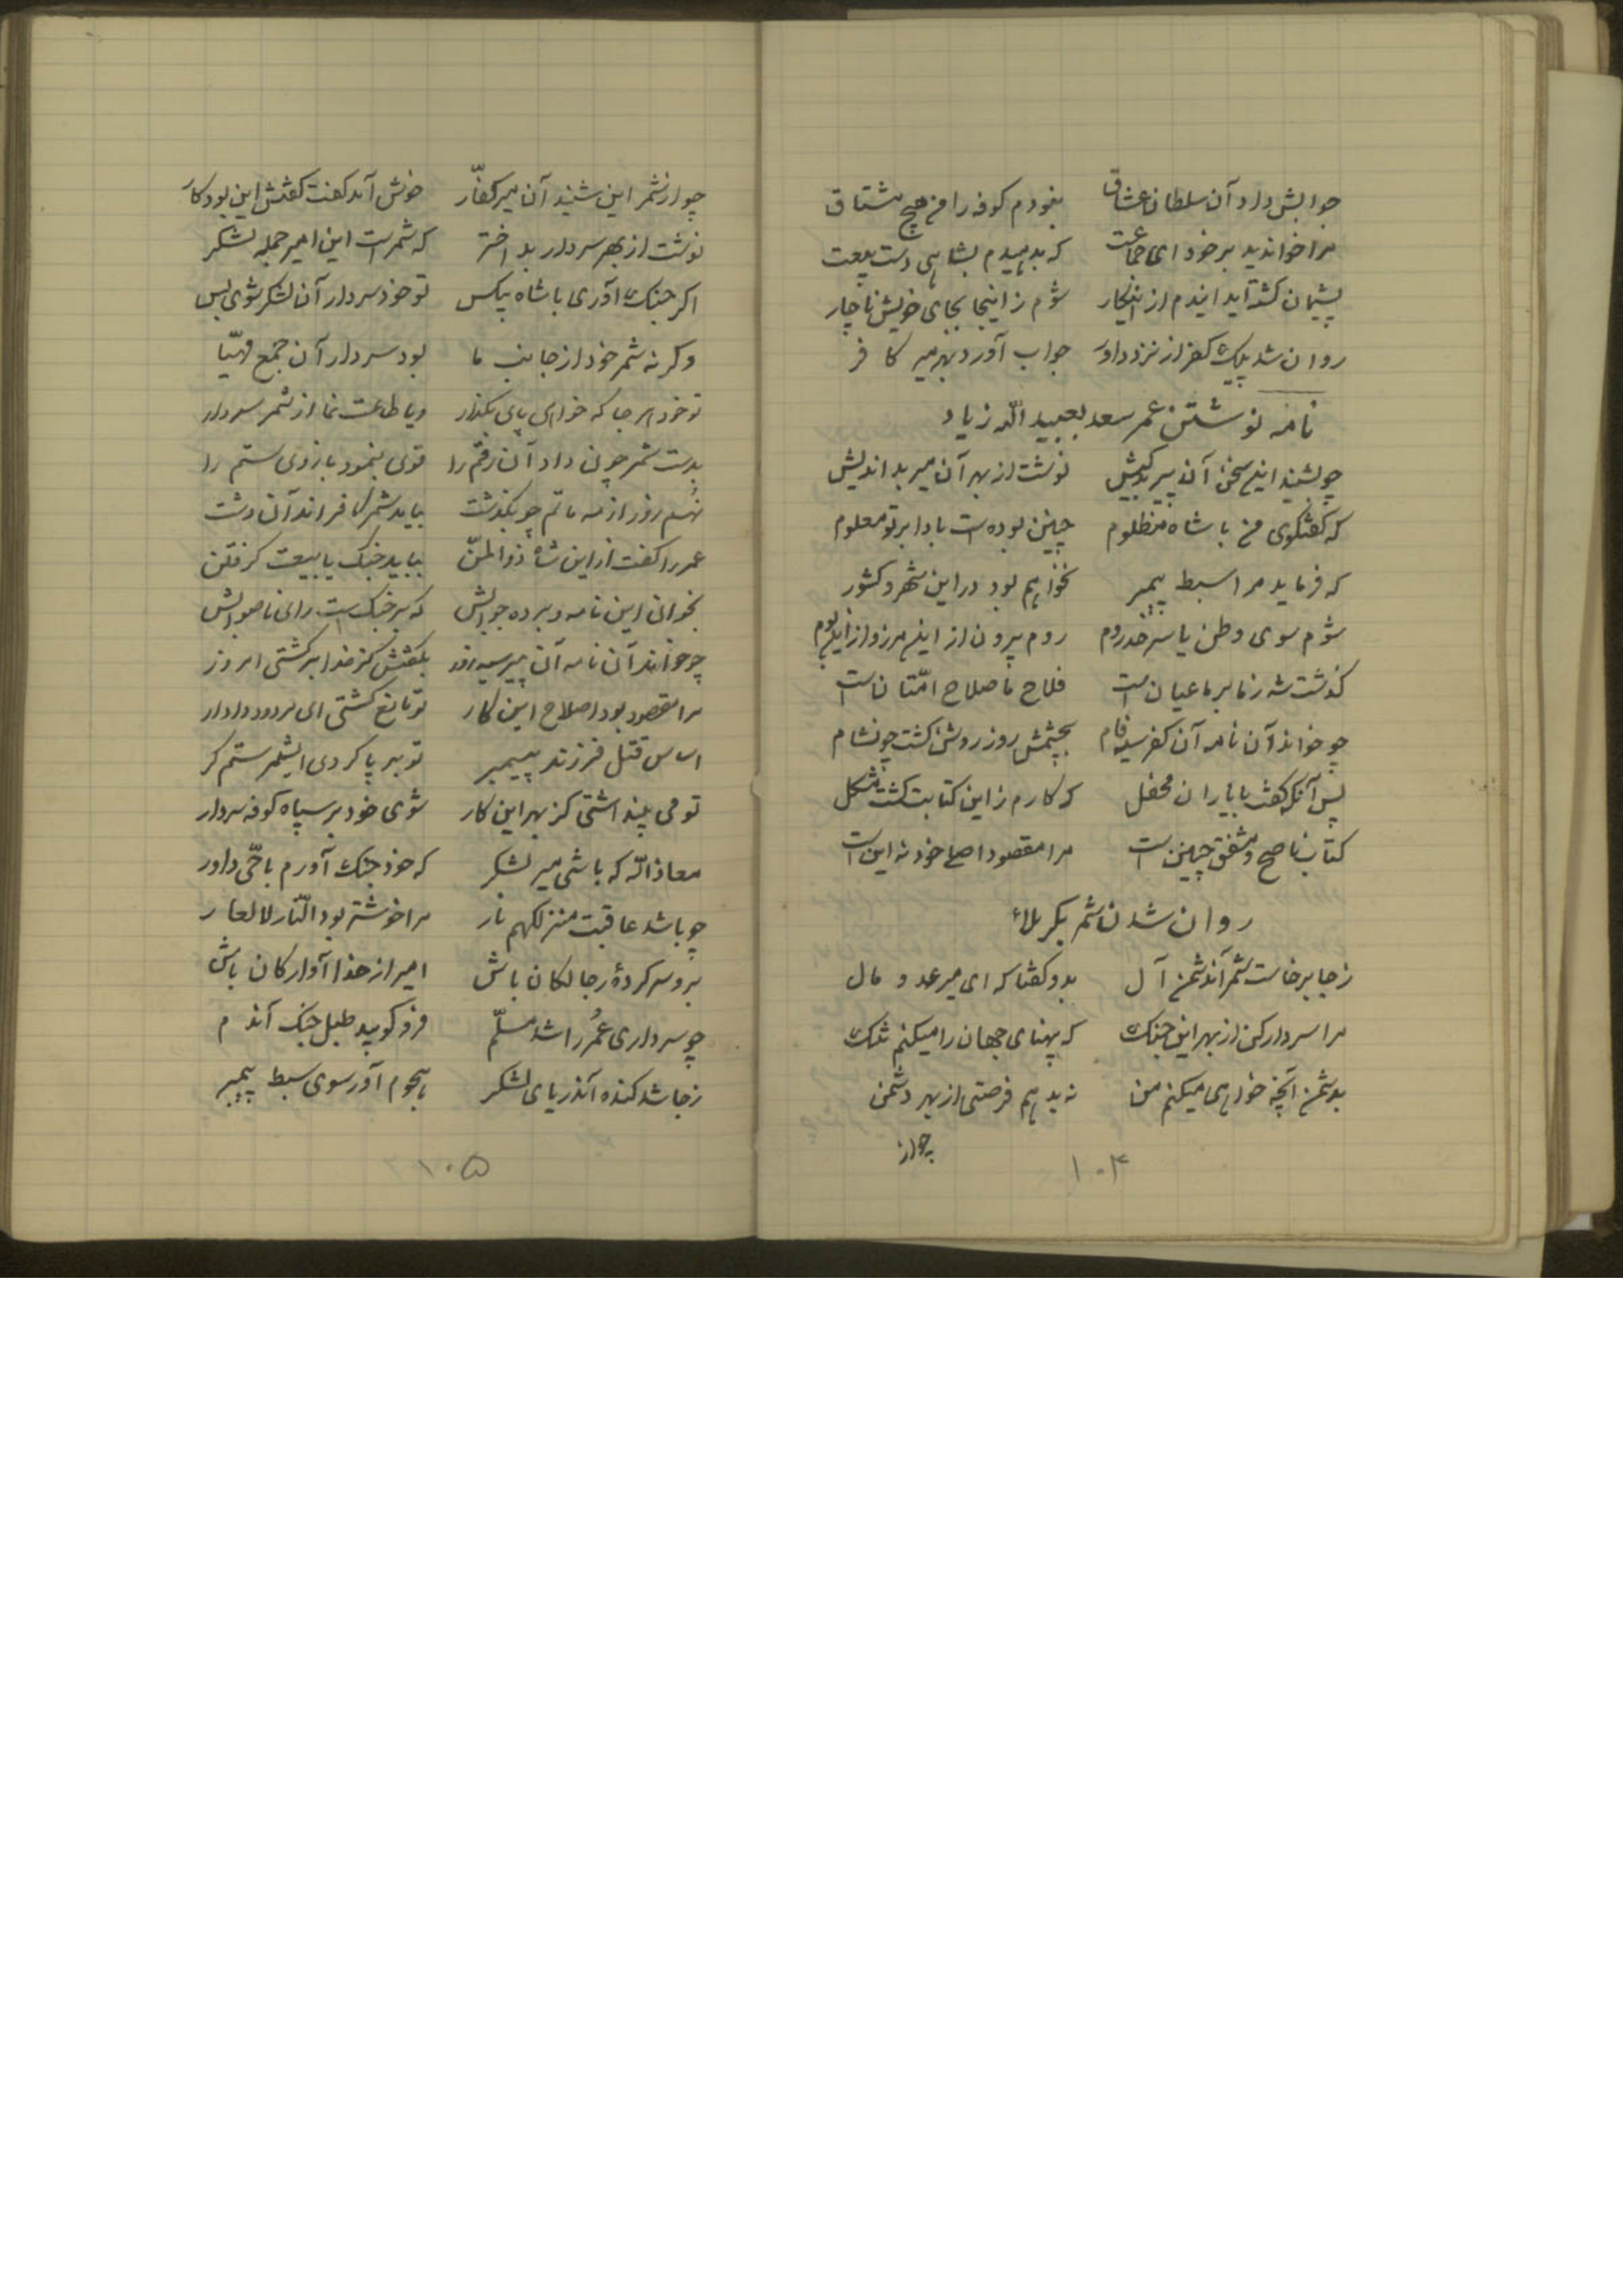 جوابش داد آن سلطان عشاق نبودم کوفه را من هیچ مشتاق
مرا خواندید بر خود ای جماعت که بدهیدم بشاهی دست بیعت
پشیمان گشته‌اید ایندم از اینکار شوم ز اینجا بجای خویش ناچار
روان شد پیک کفر از نزد داور جواب آورد بهر میر کافر
نامه نوشتن عمر سعد بعبید الله زیاد
چو بشنید این سخن آن پیر بدکیش نوشت از بهر آن میر بداندیش
که گفتگوی من با شاه مظلوم چنین بوده است بادا بر تو معلوم
که فرماید مرا سبط پیمبر نخواهم بود در این شهر و کشور
شوم سوی وطن یا سرحد روم روم بیرون از این مرز و از این بوم
گذشت شه ز ما بر ما عیان است فلاح ما صلاح امّتان است
چو خواند آن نامه آن کفر سیه فام بچشمش روز روشن گشت چون شام
پس آنگه گفت با یاران محفل که کارم ز این کتابت گشت مشکل
کتاب ناصح و مشفق چنین است مرا مقصود اصلح خود نه این است
روان شدن شمر بکربلاء
ز جا برخاست شمر آندشمن آل بدو گفتا که ای میر عدو مال
مرا سردار کن از بهر این جنک که پهنای جهان را میکنم تنک
بدشمن آنچه خواهی میکنم من نه بدهم فرصتی از بهر دشمن
چو از
۱۰۴
چو از شمر این شنید آن میر کفّار خوش آمد گفت گفتش این بود کار
نوشت از بهر سردار بد اختر که شمر است این امیر جمله لشکر
اگر جنک آوری با شاه بیکس تو خود سردار آن لشکر شوی بس
وگر نه شمر خود از جانب ما بود سردار آن جمع مهیّا
تو خود هر جا که خواهی پای بگذار و یا طاعت نما از شمر سردار
بدست شمر چون داد آن رقم را قوی بنمود بازوی ستم را
نهم روز از مه ماتم چو بگذشت بیامد شمر کافر اندر آن دشت
عمر را گفت از این شاه ذوالمنّ بباید جنک یا بیعت گرفتن
بخوان این نامه و بر ده جوابش که بر جنک است رای ناصوابش
چو خواند آن نامه آن پیر سیه روز بگفتش کز خدا برگشتی امروز
مرا مقصود بود اصلاح این کار تو مانع گشتی ای مردود دادار
اساس قتل فرزند پیمبر تو بر پا کردی ایشمر ستمگر
تو می پنداشتی کز بهر این کار شوی خود بر سپاه کوفه سردار
معاذ الله که باشی میر لشکر که خود جنک آورم با حّی داور
چو باشد عاقبت منزلگهم نار مرا خوشتر بود النّار لا العار
برو سرکردهٔ رجالکان باش امیر از خدا آوارکان باش
چو سرداری عمر را شد مسلّم فرو کوبید طبل جنک آندم
ز جا شد کنده آندریای لشکر هجوم آور سوی سبط پیمبر
۱۰۵